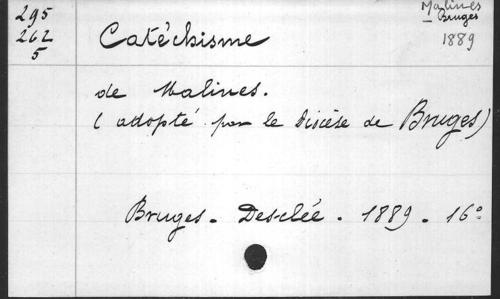 295
262
5
Malines
– Bruges
1889
Catéchisme
de Malines.
(adopté par le Diocèse de Bruges)
Bruges - Desclée - 1889 - 16º